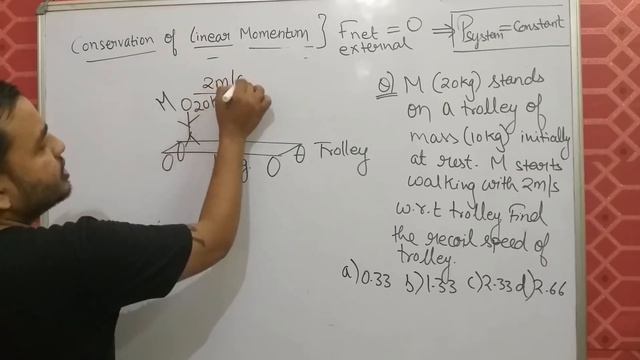 Conservation of linear Momentum } Fnet = 0 ⇒ Psystem = Constant
external
2m/s
M 20k
Trolley
g
Q) M (20kg) stands
on a trolley of
mass (10kg) initially
at rest. M starts
walking with 2m/s
w.r.t trolley Find
the recoil speed of
trolley.
a) 0.33 b) 1.33 c) 2.33 d) 2.66